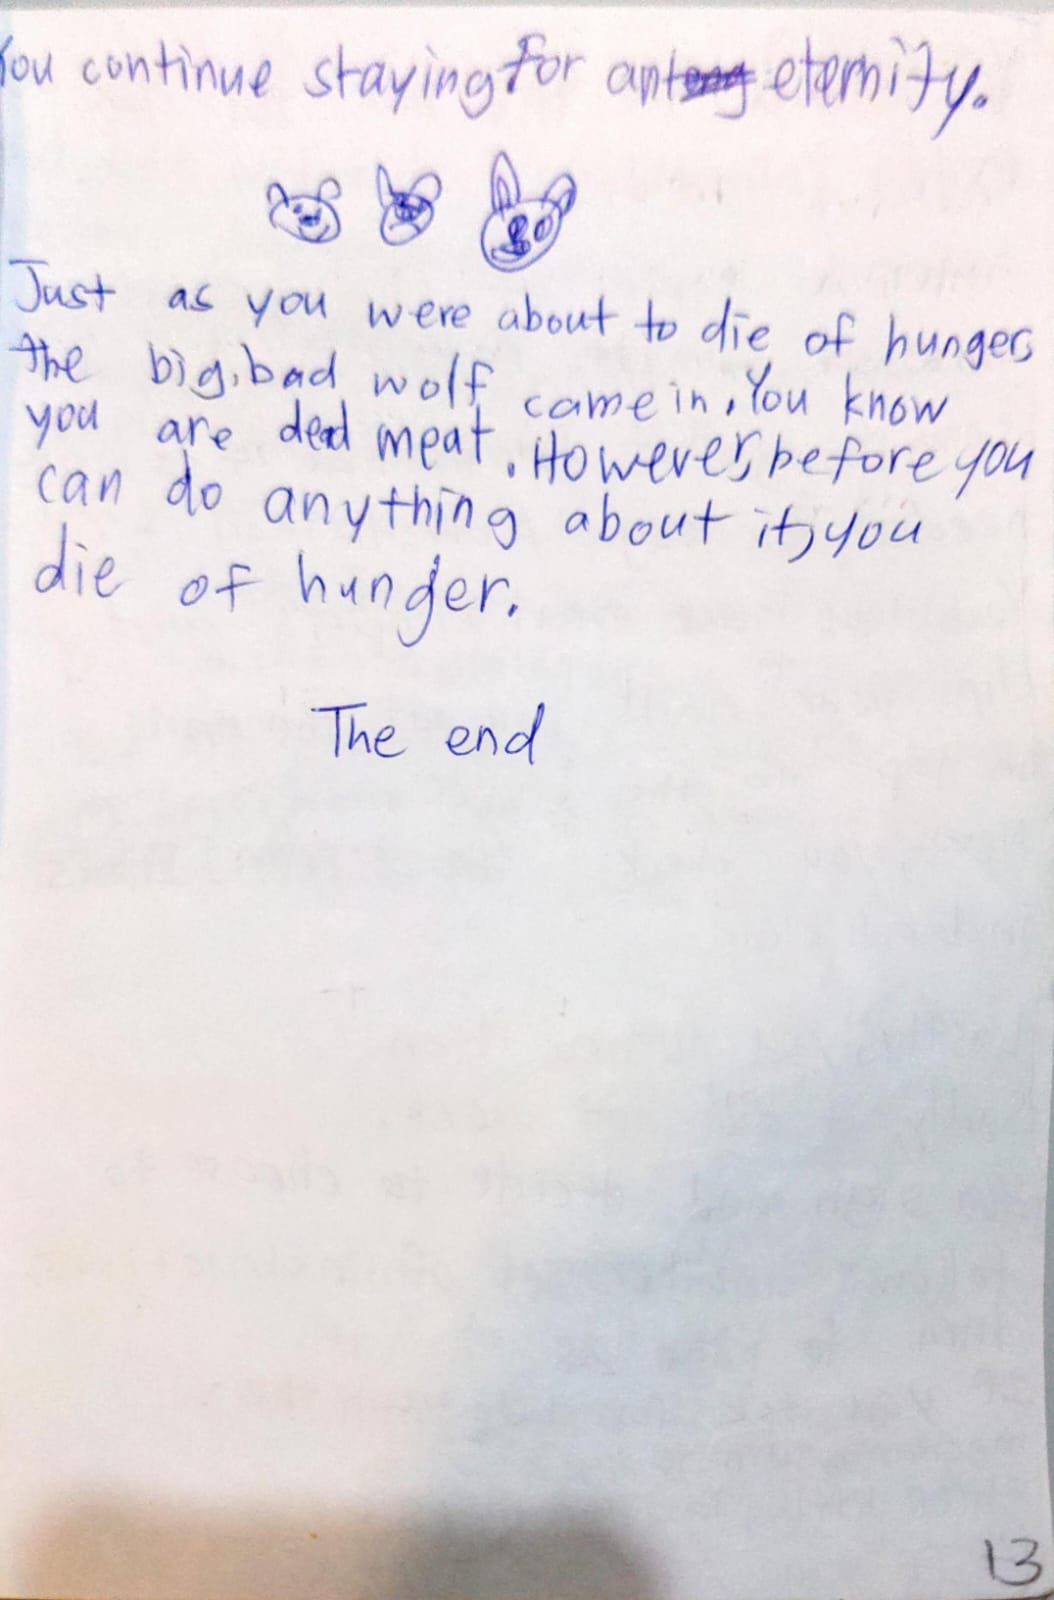 You continue staying for an eternity.
Just as you were about to die of hunger,
the big, bad wolf came in. You know
you are dead meat. However, before you
can do anything about it, you
die of hunger.
The end
13